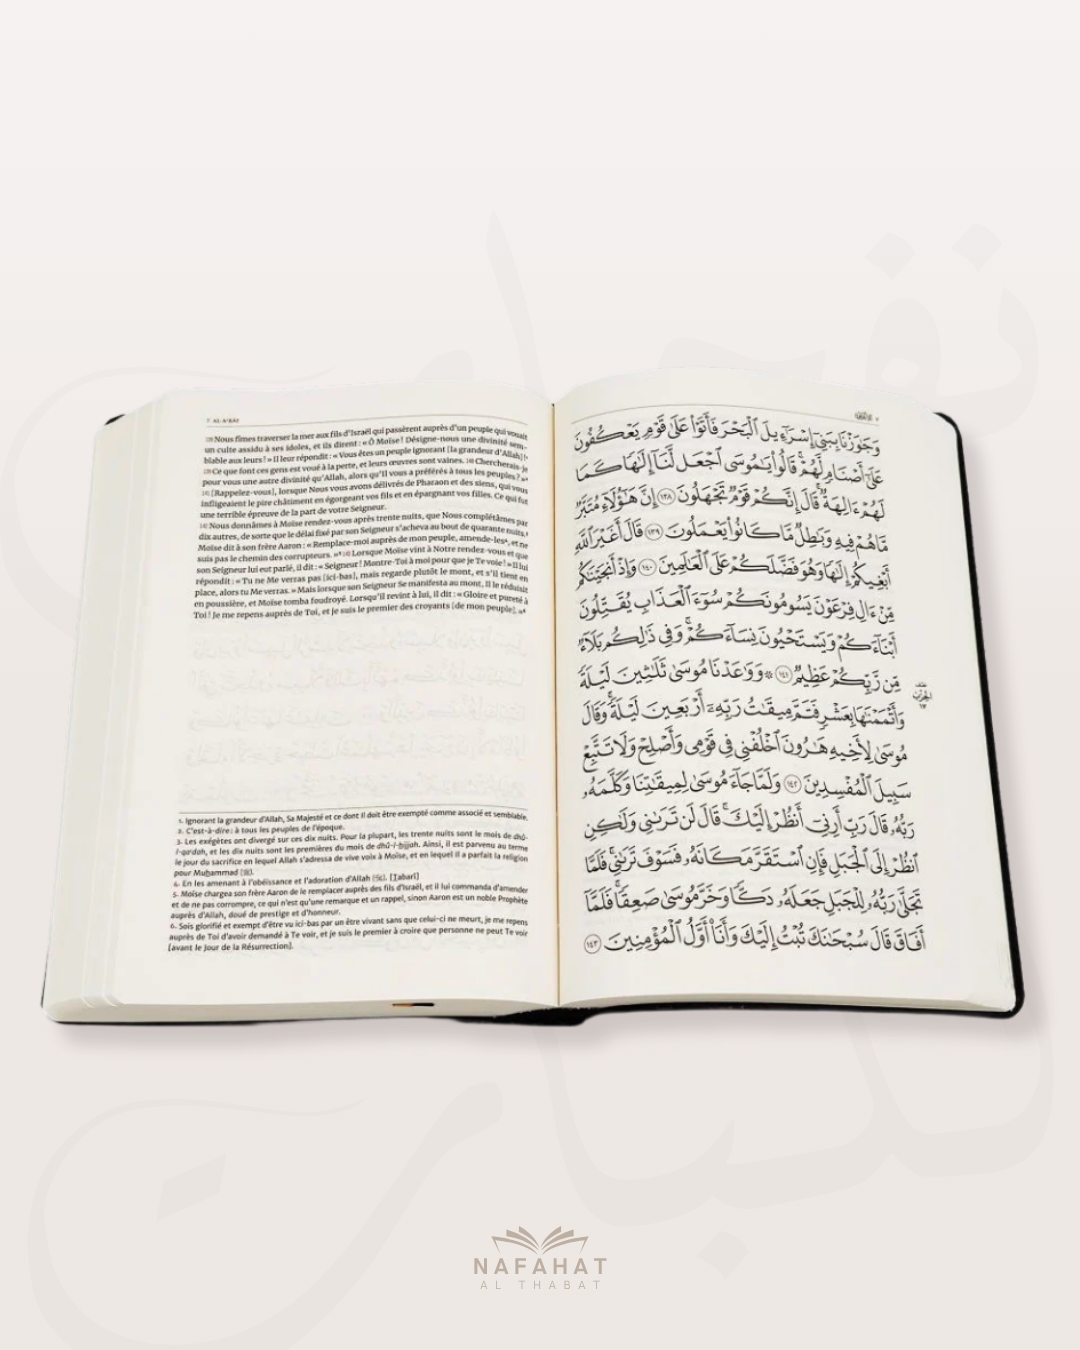 7 AL-A'RÂF
138 Nous fîmes traverser la mer aux fils d'Israël qui passèrent auprès d'un peuple qui vouait
un culte assidu à ses idoles, et ils dirent : « Ô Moïse ! Désigne-nous une divinité sem-
blable aux leurs ! » Il leur répondit : « Vous êtes un peuple ignorant [la grandeur d'Allah] !¹
139 Ce que font ces gens est voué à la perte, et leurs œuvres sont vaines. 140 Chercherais-je
pour vous une autre divinité qu'Allah, alors qu'il vous a préférés à tous les peuples ? »²
141 [Rappelez-vous], lorsque Nous vous avons délivrés de Pharaon et des siens, qui vous
infligeaient le pire châtiment en égorgeant vos fils et en épargnant vos filles. Ce qui fut
une terrible épreuve de la part de votre Seigneur.
142 Nous donnâmes à Moïse rendez-vous après trente nuits, que Nous complétâmes par
dix autres, de sorte que le délai fixé par son Seigneur s'acheva au bout de quarante nuits.³
Moïse dit à son frère Aaron : « Remplace-moi auprès de mon peuple, amende-les⁴, et ne
suis pas le chemin des corrupteurs. »⁵ 143 Lorsque Moïse vint à Notre rendez-vous et que
son Seigneur lui eut parlé, il dit : « Seigneur ! Montre-Toi à moi pour que je Te voie ! » Il lui
répondit : « Tu ne Me verras pas [ici-bas], mais regarde plutôt le mont, et s'il tient en
place, alors tu Me verras. » Mais lorsque son Seigneur Se manifesta au mont, Il le réduisit
en poussière, et Moïse tomba foudroyé. Lorsqu'il revint à lui, il dit : « Gloire et pureté à
Toi ! Je me repens auprès de Toi, et je suis le premier des croyants [de mon peuple]. »⁶
1. Ignorant la grandeur d'Allah, Sa Majesté et ce dont Il doit être exempté comme associé et semblable.
2. C'est-à-dire : à tous les peuples de l'époque.
3. Les exégètes ont divergé sur ces dix nuits. Pour la plupart, les trente nuits sont le mois de dhû-
l-qa'dah, et les dix nuits sont les premières du mois de dhû-l-ḥijjah. Ainsi, il est parvenu au terme
le jour du sacrifice en lequel Allah s'adressa de vive voix à Moïse, et en lequel Il a parfait la religion
pour Muḥammad (ﷺ).
4. En les amenant à l'obéissance et l'adoration d'Allah. [Ṭabarî]
5. Moïse chargea son frère Aaron de le remplacer auprès des fils d'Israël, et il lui commanda d'amender
et de ne pas corrompre, ce qui n'est qu'une remarque et un rappel, sinon Aaron est un noble Prophète
auprès d'Allah, doué de prestige et d'honneur.
6. Sois glorifié et exempt d'être vu ici-bas par un être vivant sans que celui-ci ne meurt, je me repens
auprès de Toi d'avoir demandé à Te voir, et je suis le premier à croire que personne ne peut Te voir
[avant le Jour de la Résurrection].
وَجَٰوَزْنَا بِبَنِىٓ إِسْرَٰٓءِيلَ ٱلْبَحْرَ فَأَتَوْا۟ عَلَىٰ قَوْمٍ يَعْكُفُونَ
عَلَىٰٓ أَصْنَامٍ لَّهُمْ ۚ قَالُوا۟ يَٰمُوسَى ٱجْعَل لَّنَآ إِلَٰهًا كَمَا
لَهُمْ ءَالِهَةٌ ۚ قَالَ إِنَّكُمْ قَوْمٌ تَجْهَلُونَ ١٣٨ إِنَّ هَٰٓؤُلَآءِ مُتَبَّرٌ
مَّا هُمْ فِيهِ وَبَٰطِلٌ مَّا كَانُوا۟ يَعْمَلُونَ ١٣٩ قَالَ أَغَيْرَ ٱللَّهِ
أَبْغِيكُمْ إِلَٰهًا وَهُوَ فَضَّلَكُمْ عَلَى ٱلْعَٰلَمِينَ ١٤٠ وَإِذْ أَنجَيْنَٰكُم
مِّنْ ءَالِ فِرْعَوْنَ يَسُومُونَكُمْ سُوٓءَ ٱلْعَذَابِ ۖ يُقَتِّلُونَ
أَبْنَآءَكُمْ وَيَسْتَحْيُونَ نِسَآءَكُمْ ۚ وَفِى ذَٰلِكُم بَلَآءٌ
مِّن رَّبِّكُمْ عَظِيمٌ ١٤١ ۞ وَوَٰعَدْنَا مُوسَىٰ ثَلَٰثِينَ لَيْلَةً
وَأَتْمَمْنَٰهَا بِعَشْرٍ فَتَمَّ مِيقَٰتُ رَبِّهِۦٓ أَرْبَعِينَ لَيْلَةً ۚ وَقَالَ
مُوسَىٰ لِأَخِيهِ هَٰرُونَ ٱخْلُفْنِى فِى قَوْمِى وَأَصْلِحْ وَلَا تَتَّبِعْ
سَبِيلَ ٱلْمُفْسِدِينَ ١٤٢ وَلَمَّا جَآءَ مُوسَىٰ لِمِيقَٰتِنَا وَكَلَّمَهُۥ
رَبُّهُۥ قَالَ رَبِّ أَرِنِىٓ أَنظُرْ إِلَيْكَ ۚ قَالَ لَن تَرَىٰنِى وَلَٰكِنِ
ٱنظُرْ إِلَى ٱلْجَبَلِ فَإِنِ ٱسْتَقَرَّ مَكَانَهُۥ فَسَوْفَ تَرَىٰنِى ۚ فَلَمَّا
تَجَلَّىٰ رَبُّهُۥ لِلْجَبَلِ جَعَلَهُۥ دَكًّا وَخَرَّ مُوسَىٰ صَعِقًا ۚ فَلَمَّآ
أَفَاقَ قَالَ سُبْحَٰنَكَ تُبْتُ إِلَيْكَ وَأَنَا۠ أَوَّلُ ٱلْمُؤْمِنِينَ ١٤٣
NAFAHAT
AL THABAT